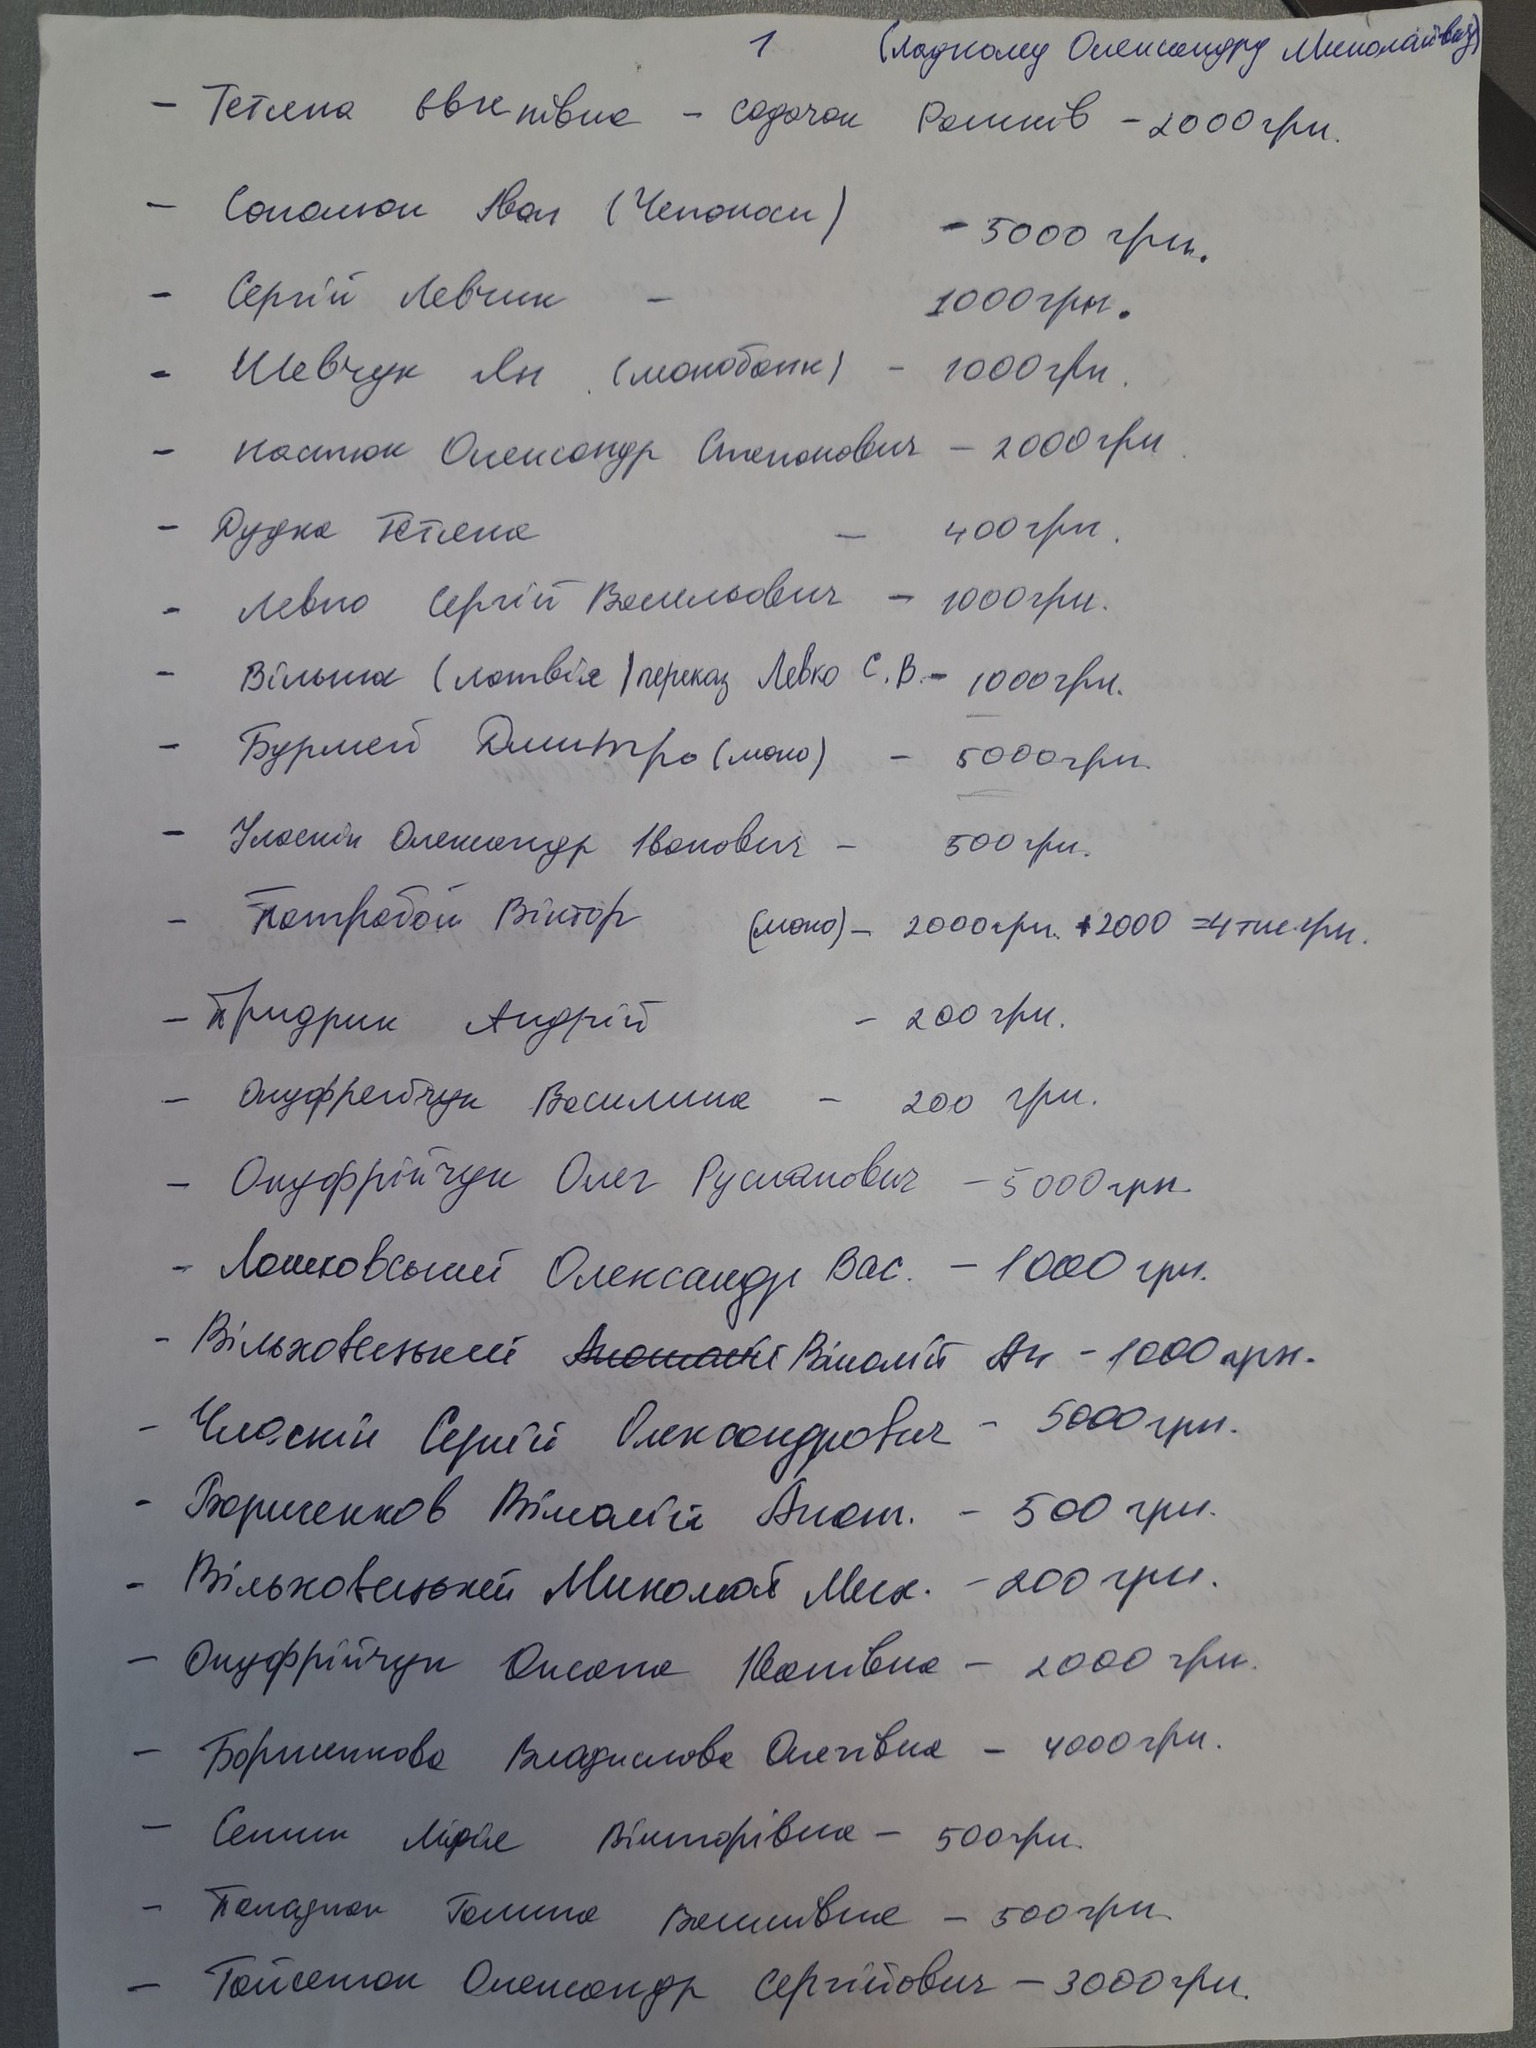 1 (Ладному Олександру Миколайвичу)
- Тетяна - садочок Ромнів - 2000 грн.
- Соломон Іван (Чепоноси) - 5000 грн.
- Сергій Левчик - 1000 грн.
- Шевчук Ян (монобанк) - 1000 грн.
- Костюк Олександр Степанович - 2000 грн
- Дудка Тетяна - 400 грн.
- Левко Сергій Васильович - 1000 грн.
- Вільнис (Латвія) переказ Левко С.В. - 1000 грн.
- Бурмей Дмитро (моно) - 5000 грн.
- Уласкін Олександр Іванович - 500 грн.
- Патрабой Віктор (моно) - 2000 грн. +2000 =4 тис. грн.
- Придрик Андрій - 200 грн.
- Онуфрейчук Василина - 200 грн.
- Онуфрійчук Олег Русланович - 5000 грн.
- Лошковський Олександр Вас. - 1000 грн.
- Вільховецький Віталій Ан - 1000 грн.
- Уласкін Сергій Олександрович - 5000 грн.
- Борисенков Віталій Анат. - 500 грн.
- Вільховецький Миколай Мих. - 200 грн.
- Онуфрійчук Оксана Іванівна - 2000 грн.
- Борисенкова Владислава Олегівна - 4000 грн.
- Семик Лідія Вікторівна - 500 грн.
- Паладюк Галина Василівна - 500 грн.
- Гайсенюк Олександр Сергійович - 3000 грн.